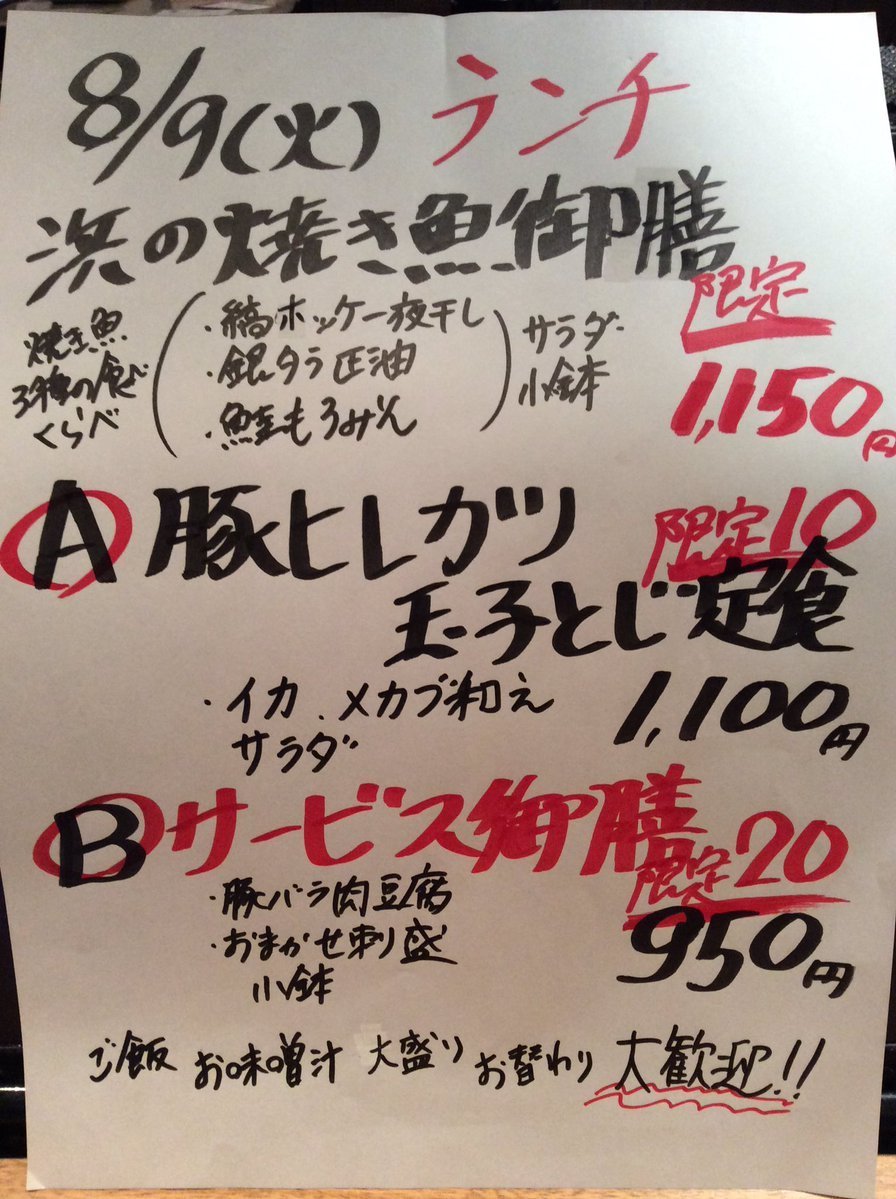 8/9(火) ランチ
浜の焼き魚御膳
限定
焼き魚
3種の食べ
くらべ
・縞ホッケ一夜干し
・銀タラ正油
・鮭もろみん
サラダ
小鉢
1,150円
A 豚ヒレカツ
限定10
玉子とじ定食
・イカ、メカブ和え
サラダ
1,100円
B サービス御膳
限定20
・豚バラ肉豆腐
・おまかせ刺り盛
小鉢
950円
ご飯 お味噌汁 大盛り お替わり 大歓迎!!